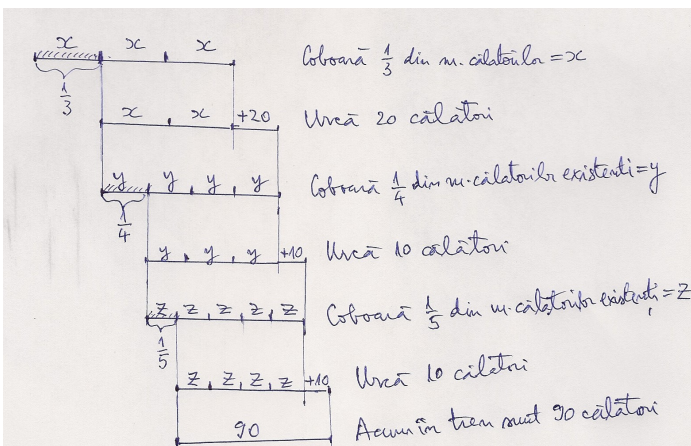 x x x Coboară 1/3 din nr. călătorilor = x
1/3
x x +20 Urcă 20 călători
y y y y Coboară 1/4 din nr. călătorilor existenti = y
1/4
y y y +10 Urcă 10 călători
z z z z z Coboară 1/5 din nr. călătorilor existenți = Z
1/5
z z z z +10 Urcă 10 călători
90 Acum în tren sunt 90 călători